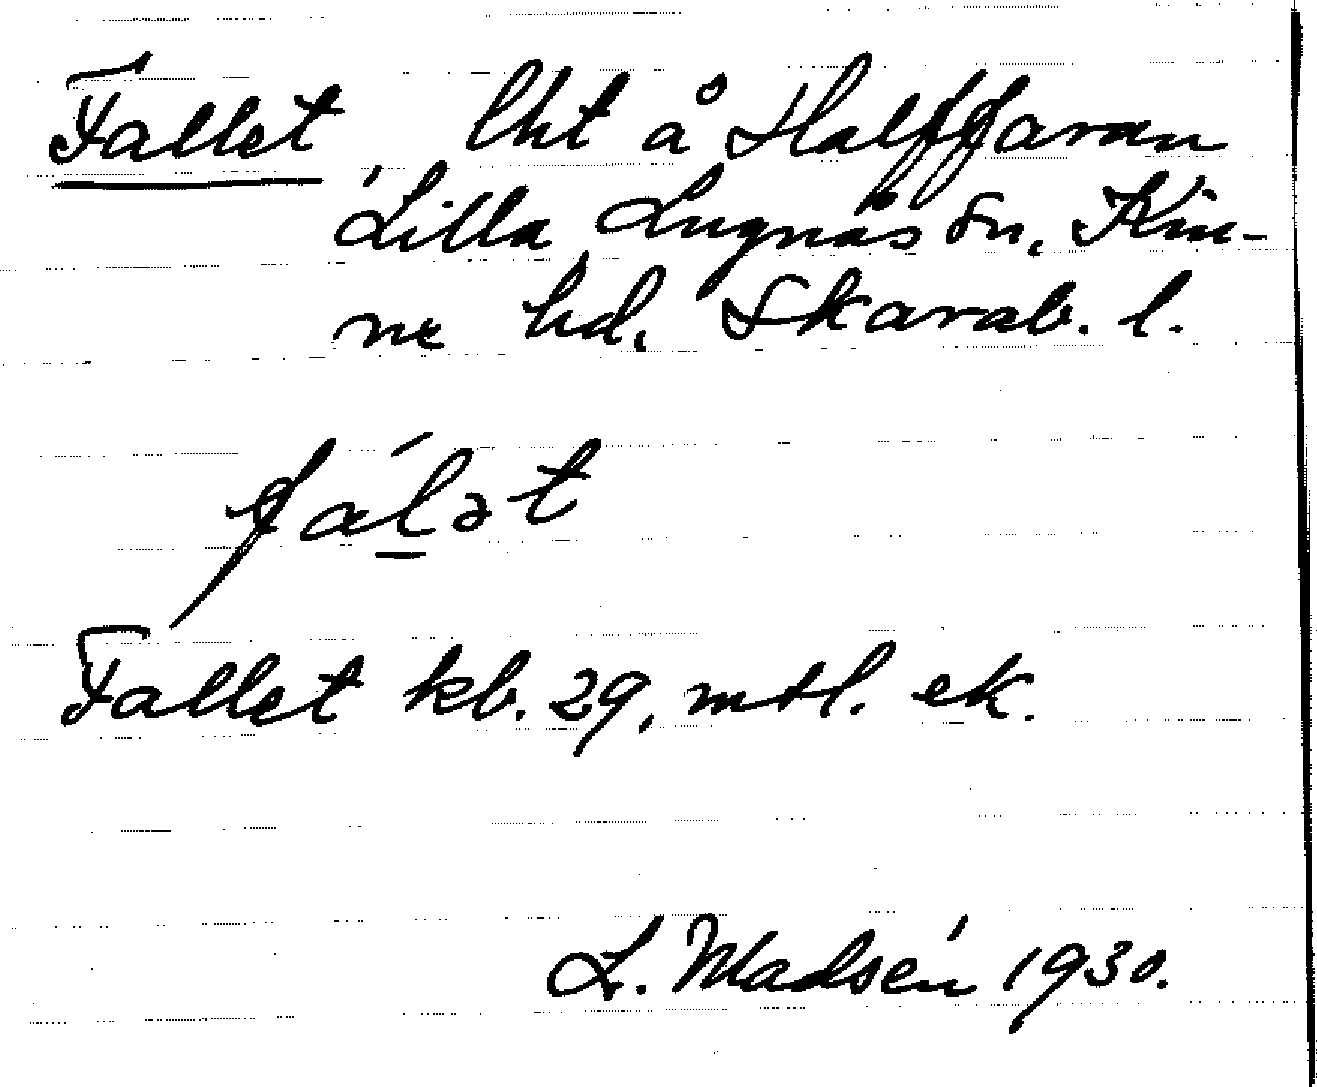 Fallet lht å Halffaran
Lilla Lugnås sn, Kin-
ne hd. Skarab. l.
fálət
Fallet kb. 29, mtl. ek.
L. Madsén 1930.